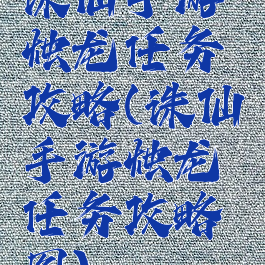 诛仙手游
烛龙任务
攻略(诛仙
手游烛龙
任务攻略
图)